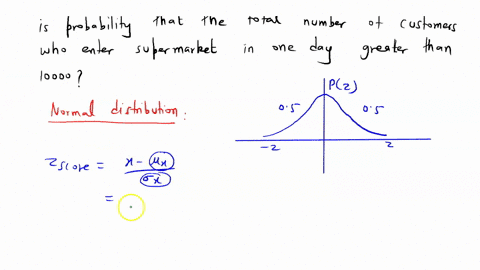 is probability that the total number of customers
who enter supermarket in one day greater than
10000?
Normal distribution:
P(z)
0.5 0.5
-z z
z score = x - μx / σx
=